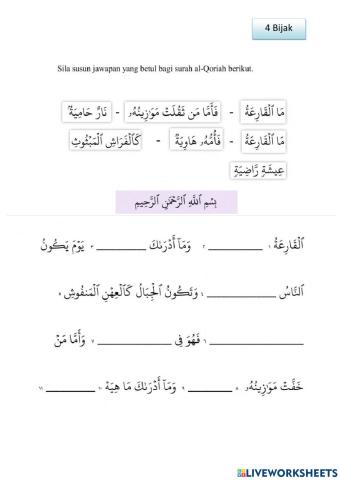 4 Bijak
Sila susun jawapan yang betul bagi surah al-Qoriah berikut.
مَا الْقَارِعَةُ - فَأَمَّا مَن ثَقُلَتْ مَوَازِينُهُۥ - نَارٌ حَامِيَةٌۢ
مَا الْقَارِعَةُ - فَأُمُّهُۥ هَاوِيَةٌ - كَالْفَرَاشِ الْمَبْثُوثِ
عِيشَةٍ رَّاضِيَةٍ
بِسْمِ اللَّهِ الرَّحْمَٰنِ الرَّحِيمِ
الْقَارِعَةُ ١ __________ ٢ وَمَآ أَدْرَىٰكَ __________ ٣ يَوْمَ يَكُونُ
النَّاسُ __________ ٤ وَتَكُونُ الْجِبَالُ كَالْعِهْنِ الْمَنفُوشِ ٥
__________ ٦ فَهُوَ فِى __________ ٧ وَأَمَّا مَنْ
خَفَّتْ مَوَازِينُهُۥ ٨ __________ ٩ وَمَآ أَدْرَىٰكَ مَا هِيَهْ ١٠ __________ ١١
LIVEWORKSHEETS